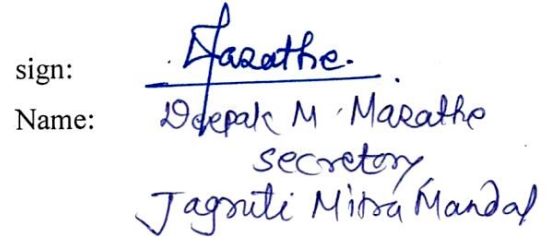 sign: Marathe.
Name: Deepak M. Marathe
secretory,
Jagruti Mitra Mandal